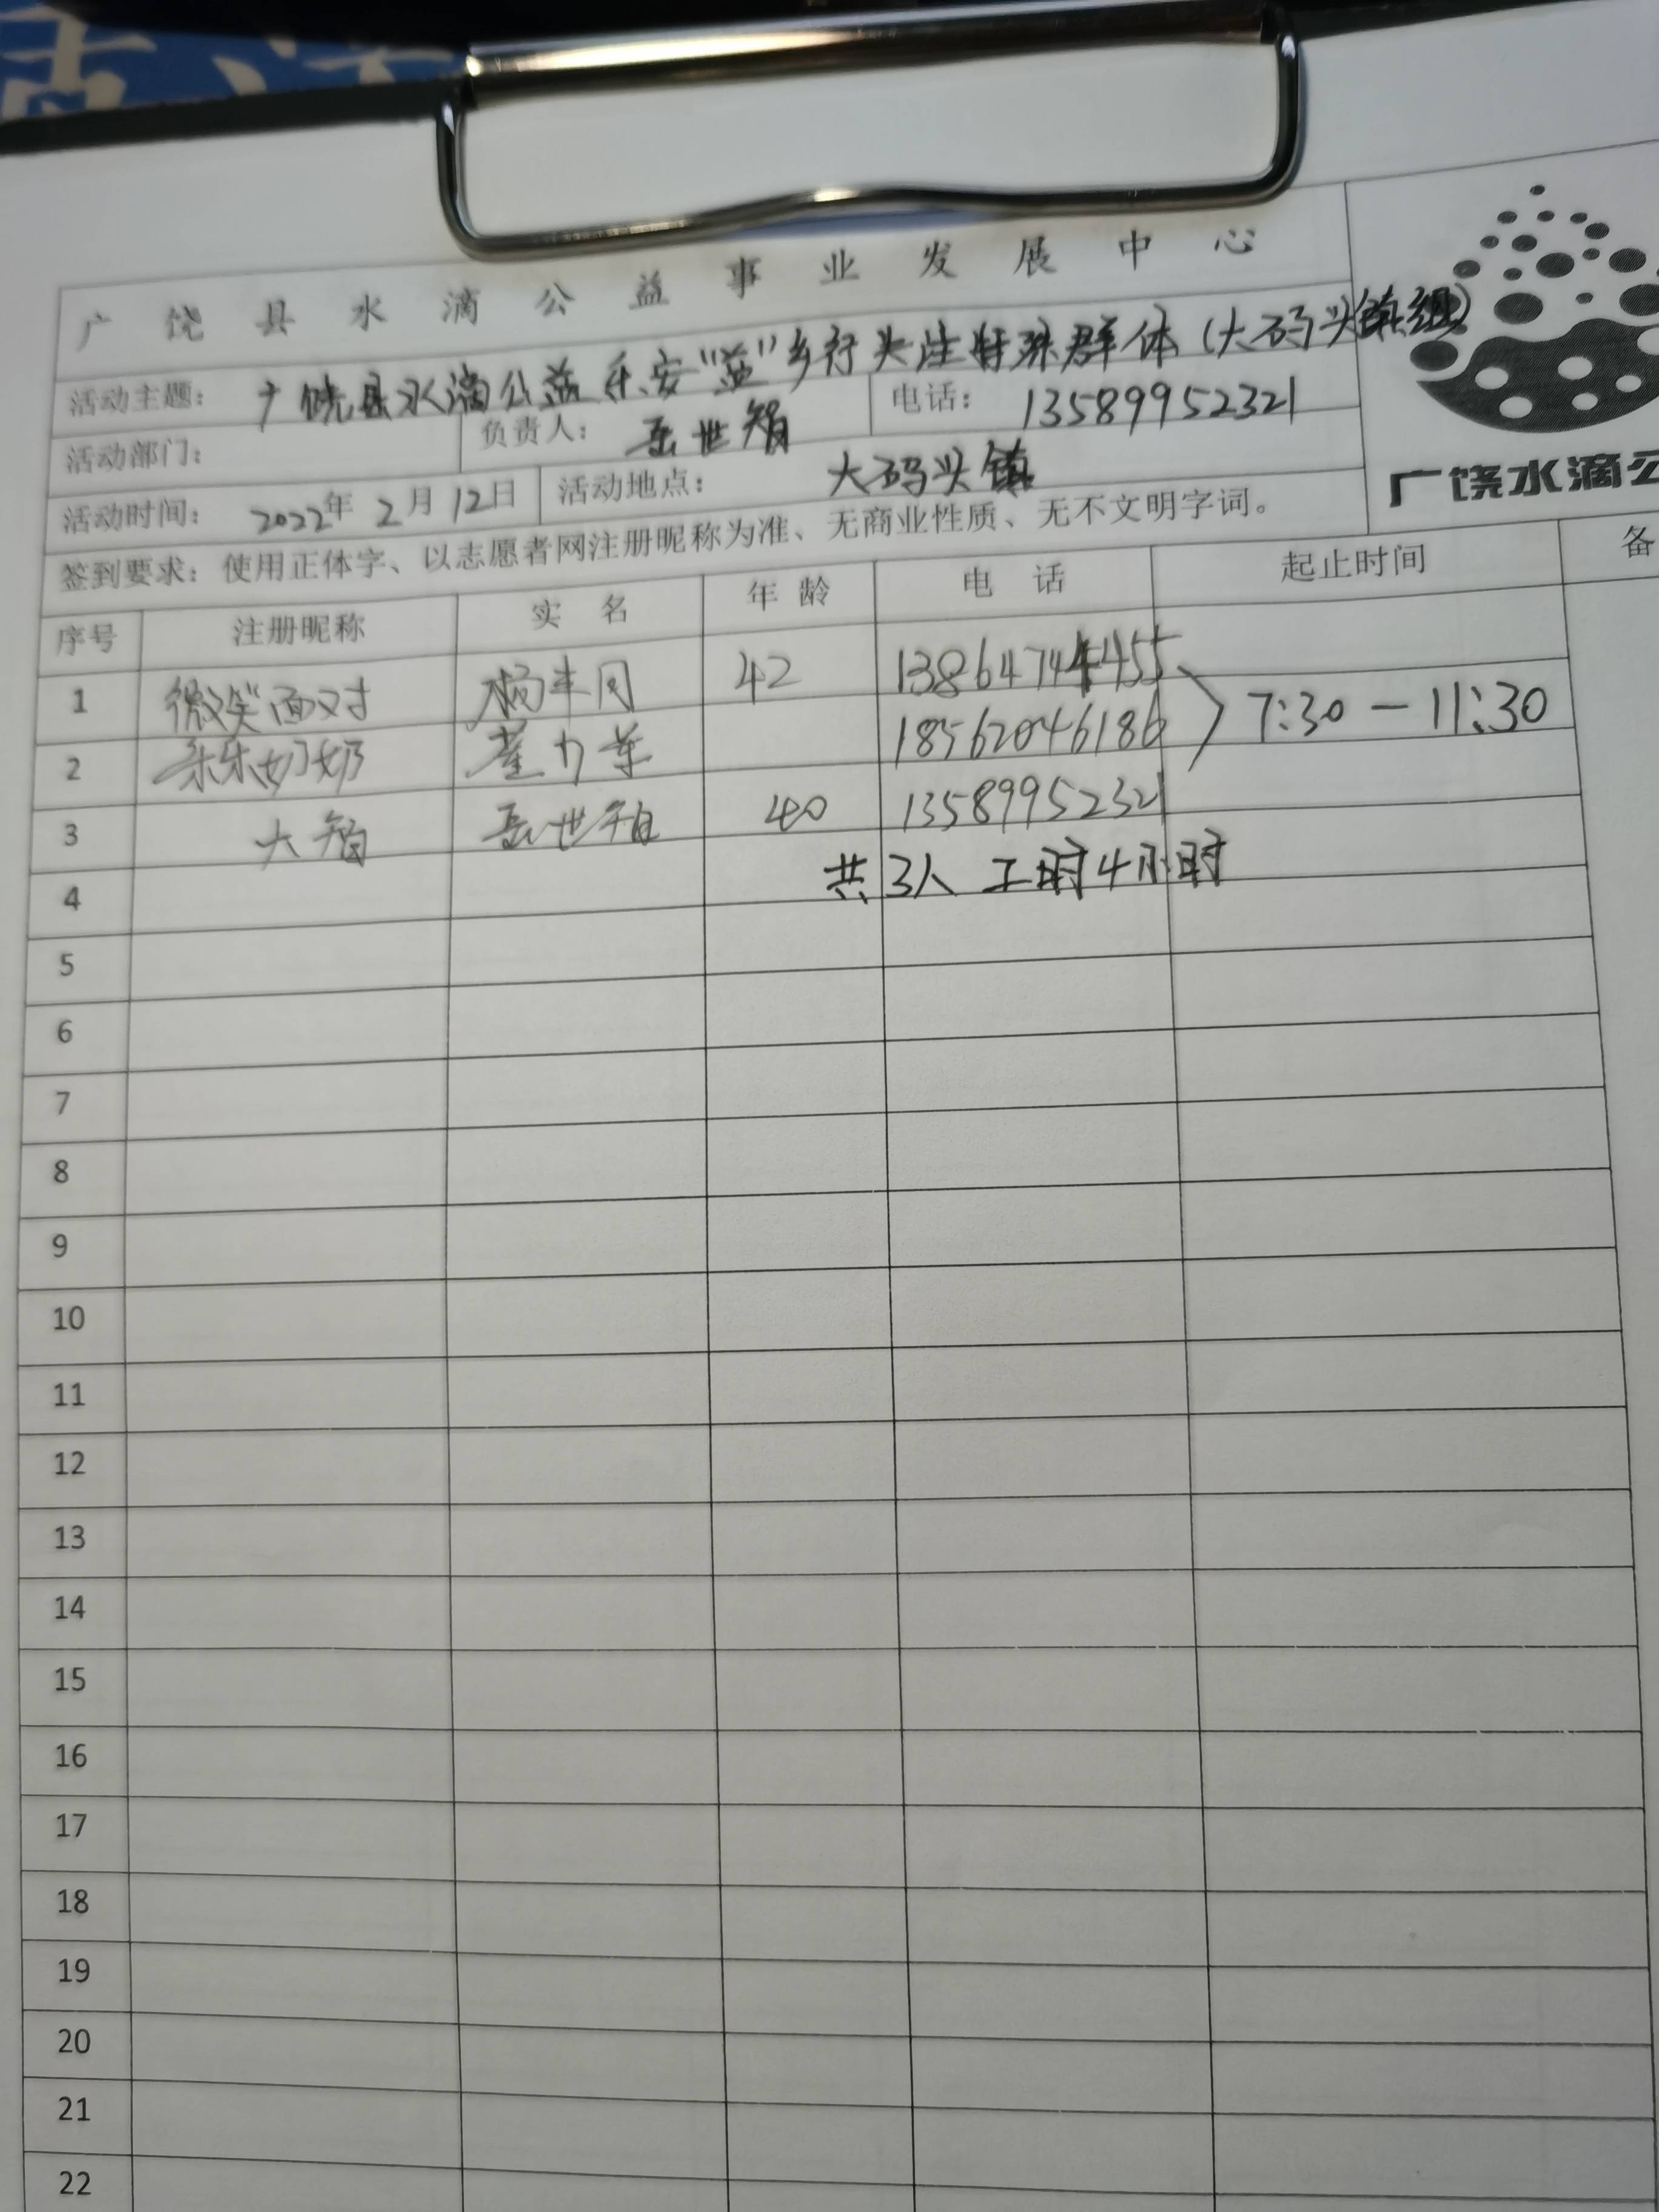 广饶县水滴公益事业发展中心
活动主题: 广饶县水滴公益乐安"益"乡行关注特殊群体(大码头镇组)
活动部门: 负责人: 岳世智 电话: 13589952321
活动时间: 2022年2月12日 活动地点: 大码头镇
签到要求: 使用正体字、以志愿者网注册昵称为准、无商业性质、无不文明字词。
广饶水滴公
序号 注册昵称 实名 年龄 电话 起止时间 备
1 微笑面对 杨 42
2 朵朵奶奶 崔 18562046186 7:30-11:30
3 大智 岳世智 40 13589952321
4 共3人 工时4小时
5
6
7
8
9
10
11
12
13
14
15
16
17
18
19
20
21
22